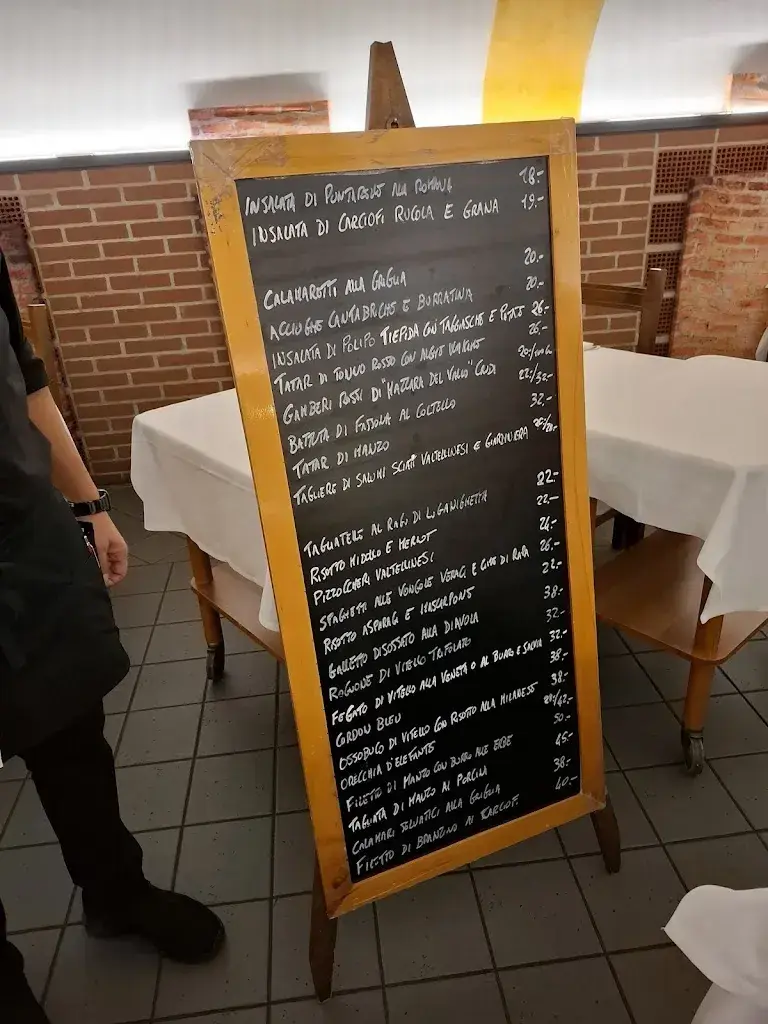 INSALATA DI PUNTARELLE ALLA ROMANA 18.-
INSALATA DI CARCIOFI RUCOLA E GRANA 19.-
CALAMARETTI ALLA GRIGLIA 20.-
ACCIUGHE CANTABRICHE E BURRATINA 20.-
INSALATA DI POLIPO TIEPIDA CON TAGGIASCHE E PATATE 26.-
TATAR DI TONNO ROSSO CON ALGHE WAKAME 26.-
GAMBERI ROSSI DI "MAZZARA DEL VALLO" CRUDI
BATTUTA DI FASSONA AL COLTELLO 22.-/32.-
TATAR DI MANZO 32.-
TAGLIERE DI SALUMI SCIATT VALTELLINESI E GIARDINIERA
TAGLIATELLE AL RAGÙ DI LUGANIGHETTA 22.-
RISOTTO MIDOLLO E MERLOT 22.-
PIZZOCCHERI VALTELLINESI 24.-
SPAGHETTI ALLE VONGOLE VERACI E CIME DI RAPA 26.-
RISOTTO ASPARAGI E MASCARPONE 22.-
GALLETTO DISOSSATO ALLA DIAVOLA 38.-
ROGNONE DI VITELLO TRIFOLATO 32.-
FEGATO DI VITELLO ALLA VENETA O AL BURRO E SALVIA 32.-
CORDON BLEU 38.-
OSSOBUCO DI VITELLO CON RISOTTO ALLA MILANESE 38.-
ORECCHIA D'ELEFANTE
FILETTO DI MANZO CON BURRO ALLE ERBE 50.-
TAGLIATA DI MANZO AI PORCINI 45.-
CALAMARI SELVATICI ALLA GRIGLIA 38.-
FILETTO DI BRANZINO AI CARCIOFI 40.-